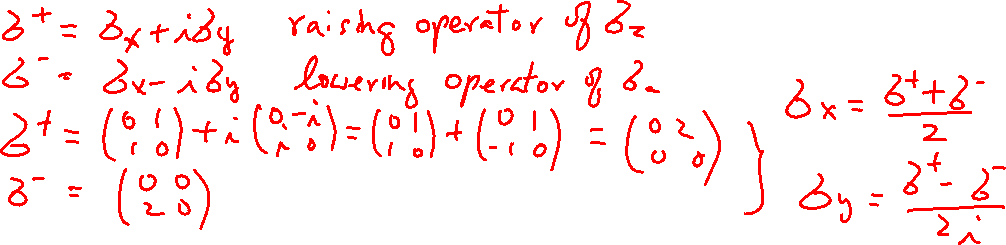 σ⁺ = σx + iσy raising operator of σz
σ⁻ = σx - iσy lowering operator of σz
σ⁺ = (0 1; 1 0) + i (0 -i; i 0) = (0 1; 1 0) + (0 1; -1 0) = (0 2; 0 0)
σ⁻ = (0 0; 2 0)
} σx = (σ⁺ + σ⁻)/2
σy = (σ⁺ - σ⁻)/2i